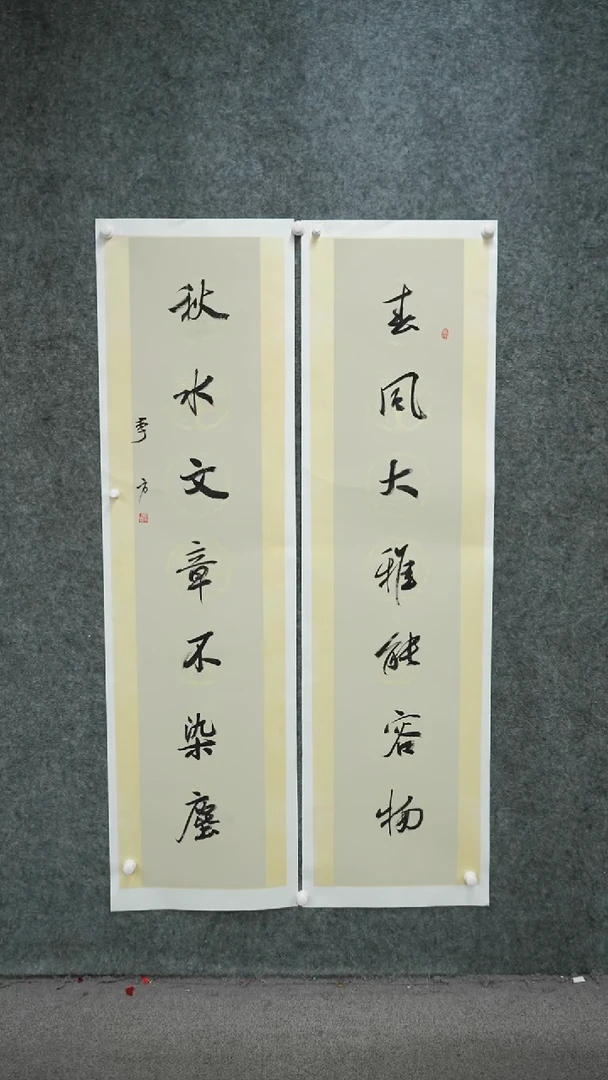 春风大雅能容物
秋水文章不染塵
季方